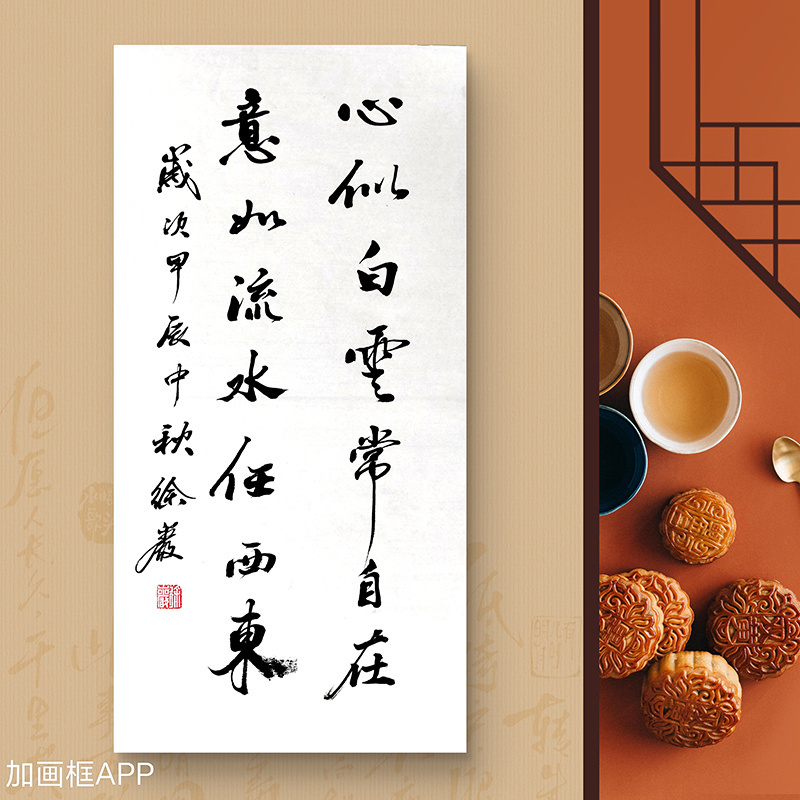 心似白雲常自在
意如流水任西東
歲次甲辰中秋徐巖
加画框APP